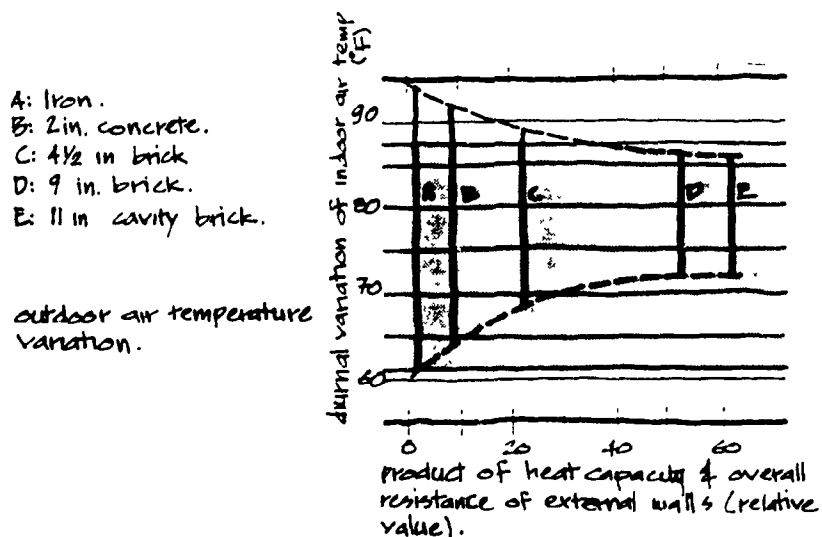 A: Iron.
B: 2in. concrete.
C: 4½ in brick
D: 9 in. brick.
E: 11 in cavity brick.
outdoor air temperature
variation.
diurnal variation of indoor air temp
(°F)
90
80
70
60
A
B
C
D
E
0
20
40
60
product of heat capacity & overall
resistance of external walls (relative
value).